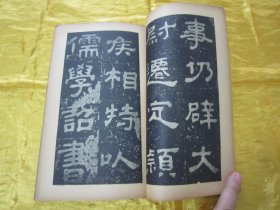 事仍辟大
尉遷定穎
侯相特以
儒學詔書